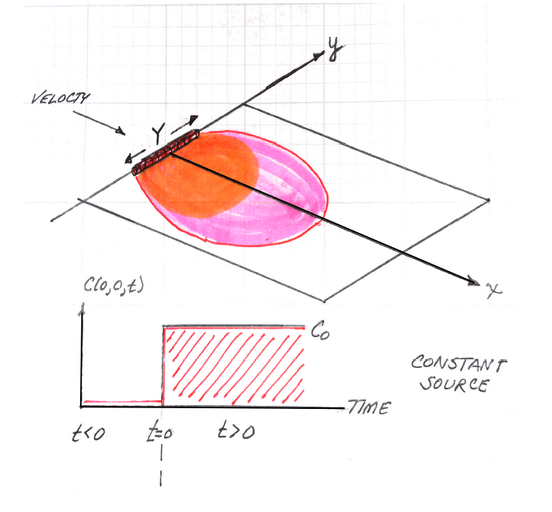 y
VELOCTY
Y
x
C(0,0,t)
C₀
CONSTANT
SOURCE
TIME
t<0
t=0
t>0